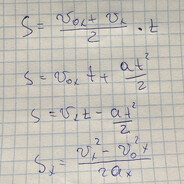 S = \frac{v_{0x} + v_x}{2} \cdot t
S = v_{0x} t + \frac{at^2}{2}
S = v_x t - \frac{at^2}{2}
S_x = \frac{v_x^2 - v_0^2 x}{2a_x}